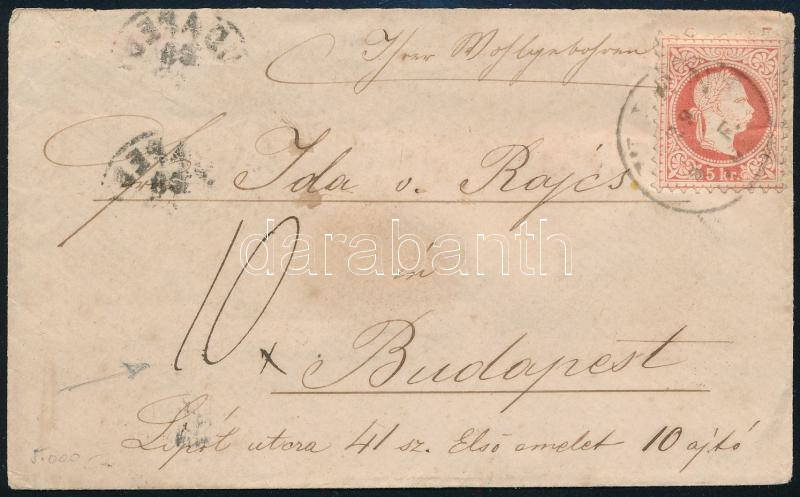 Ihrer Wohlgebohren
Ida v. Rajcs
5 kr.
10 x
in
Budapest
Lipót utcza 41 sz. Első emelet 10 ajtó
5.000
darabanth